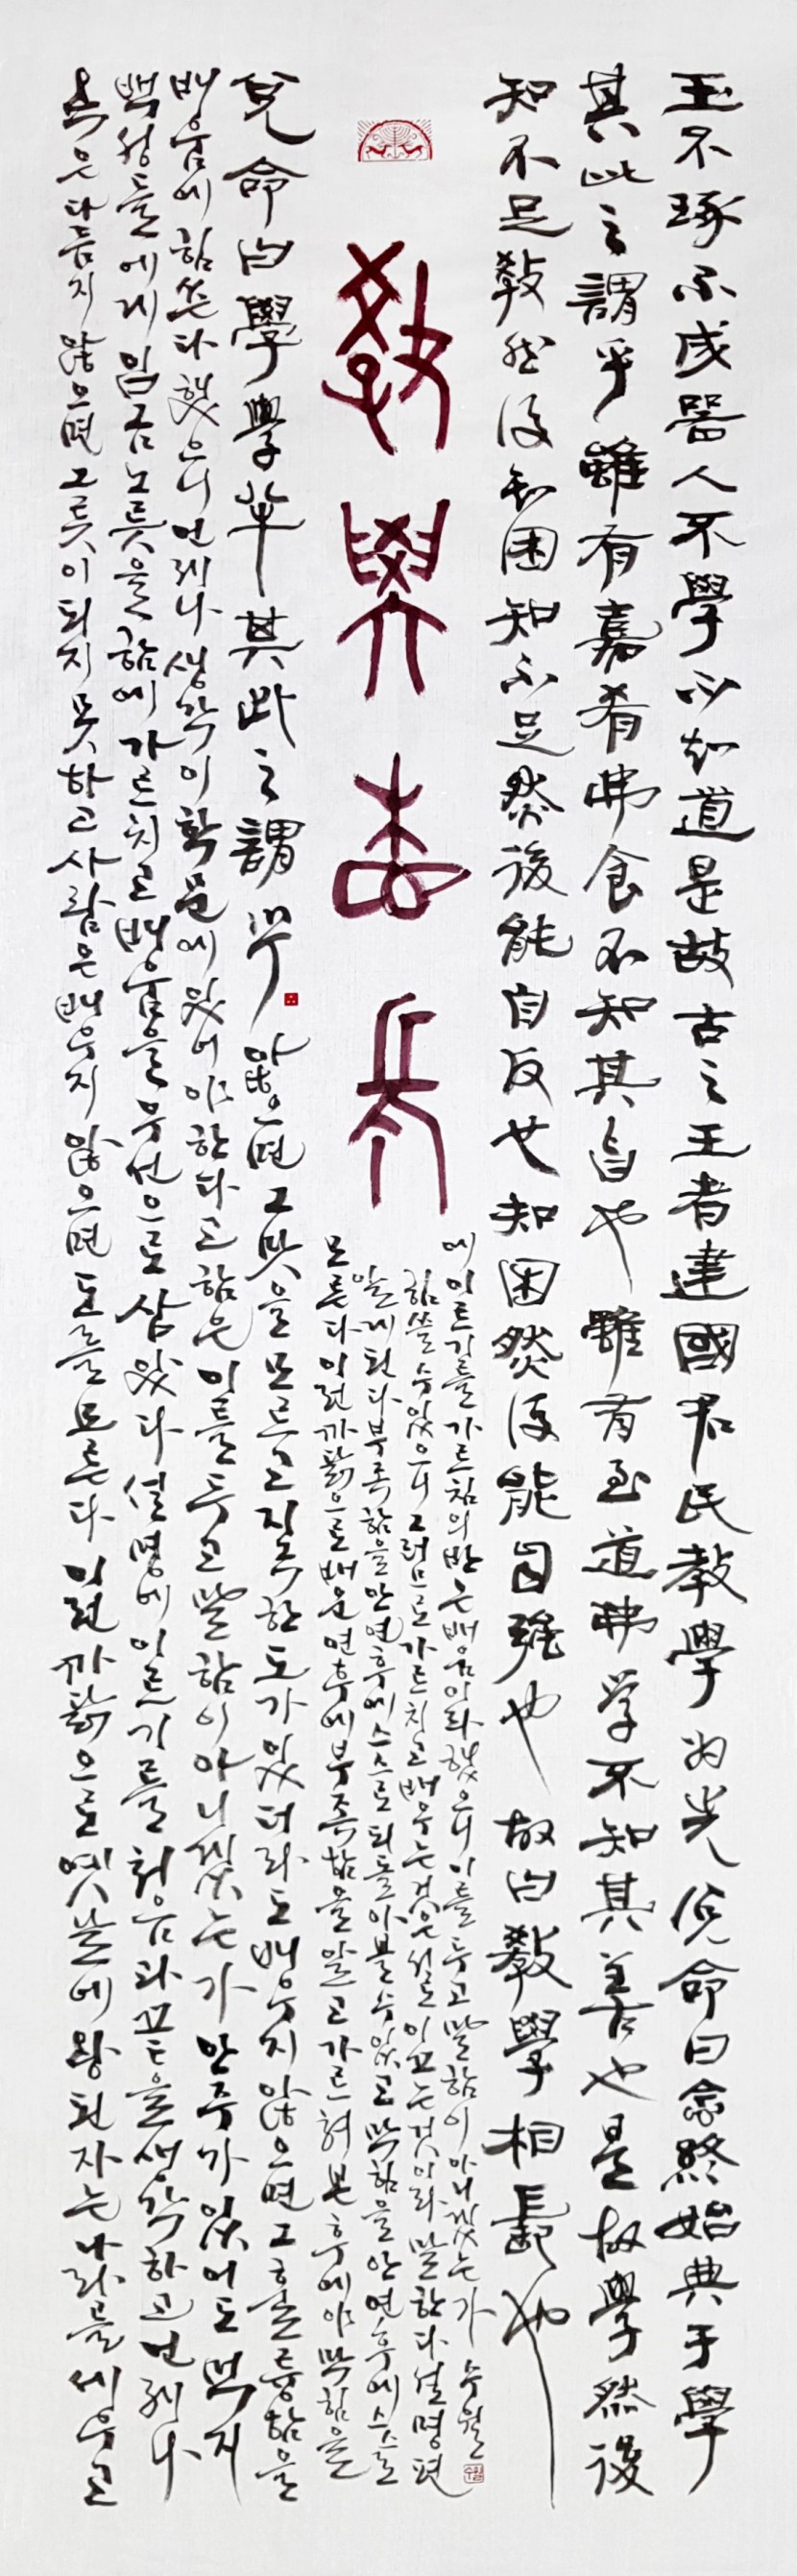 玉不琢不成器人不學不知道是故古之王者建國君民教學为先兌命曰念終始典于學
其此之謂乎雖有嘉肴弗食不知其旨也雖有至道弗学不知其善也是故學然後
知不足敎然後知困知不足然後能自反也知困然後能自强也 故曰敎學相長也
敎學相長
兌命曰學學半其此之謂乎
옥은 다듬지 않으면 그릇이 되지 못하고 사람은 배우지 않으면 도를 모른다 이런 까닭으로 옛날에 왕된 자는 나라를 세우고
백성들에게 임금노릇을 함에 가르치고 배움을 우선으로 삼았다 열명에 이르기를 처음과 끝을 생각하고 언제나
배움에 힘쓴다 했으니 언제나 생각이 학문에 있어야 한다고 함은 이를 두고 말함이 아니겠는가 안주가 있어도 먹지
않으면 그 맛을 모르고 지극한 도가 있더라도 배우지 않으면 그 훌륭함을
모른다 이런 까닭으로 배운 연후에 부족함을 알고 가르쳐 본 후에야 막힘을
알게 된다 부족함을 안 연후에 스스로 되돌아 볼 수 있고 막힘을 안 연후에 스스로
힘쓸 수 있으니 그러므로 가르치고 배우는 것은 서로 이끄는 것이라 말한다 열명편
에 이르기를 가르침의 반은 배움이라 했으니 이를 두고 말함이 아니겠는가 수월
수월